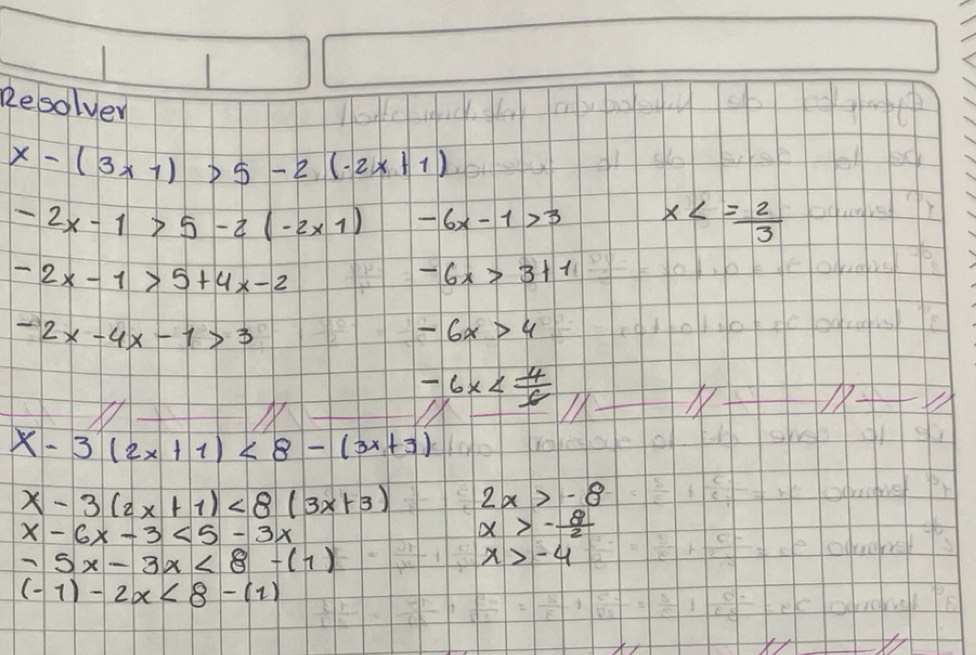 Resolver
x - (3x 1) > 5 - 2 (-2x + 1)
-2x - 1 > 5 - 2 (-2x 1)
-2x - 1 > 5 + 4x - 2
-2x - 4x - 1 > 3
-6x - 1 > 3
-6x > 3 + 1
-6x > 4
-6x < 4/6
x < = 2/3
x - 3 (2x + 1) < 8 - (3x + 3)
x - 3 (2x + 1) < 8 (3x + 3)
x - 6x - 3 < 5 - 3x
- 5x - 3x < 8 - (1)
(-1) - 2x < 8 - (1)
2x > -8
x > - 8/2
x > -4